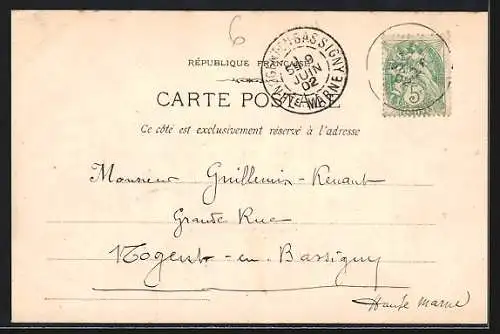 6
RÉPUBLIQUE FRANÇAISE
NOGENT-EN-BASSIGNY
9
JUIN
02
HTE MARNE
5
CARTE POSTALE
Ce côté est exclusivement réservé à l'adresse
Monsieur Guillemin-Renaut
Grande Rue
Nogent-en-Bassigny
Haute Marne